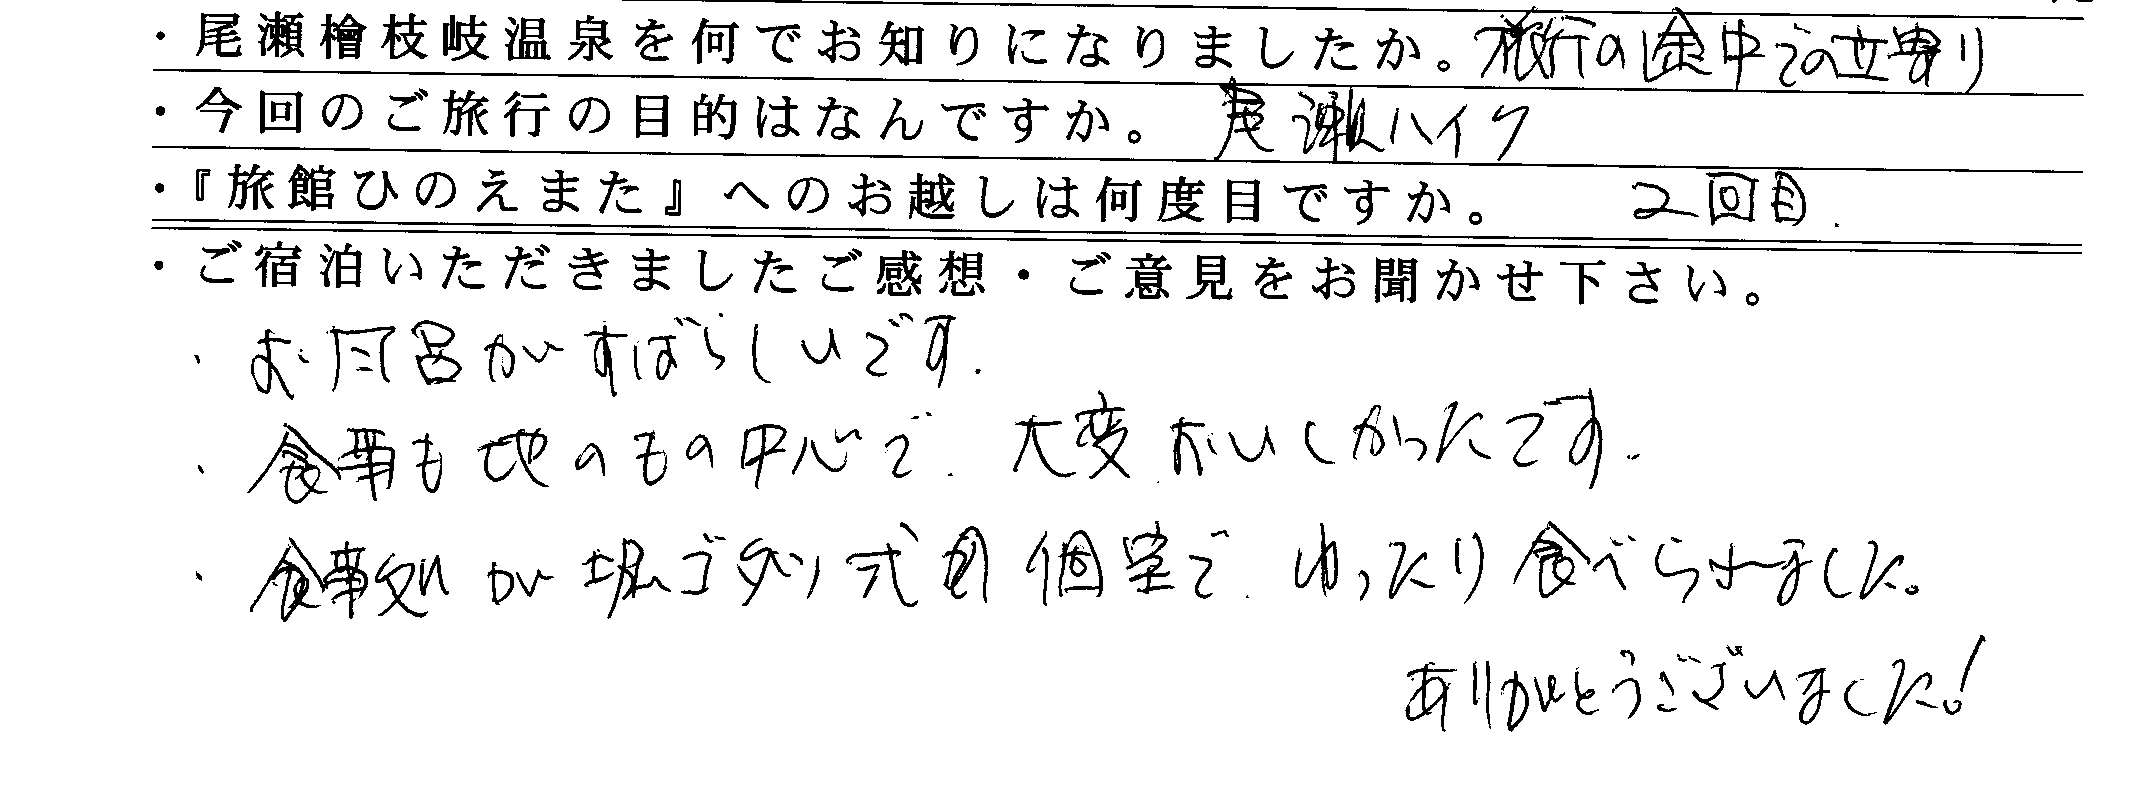 ・尾瀬檜枝岐温泉を何でお知りになりましたか。旅行の途中での立寄り
・今回のご旅行の目的はなんですか。 尾瀬ハイク
・『旅館ひのえまた』へのお越しは何度目ですか。 2回目.
・ご宿泊いただきましたご感想・ご意見をお聞かせ下さい。
・お風呂がすばらしいです.
・食事も地のもの中心で、大変おいしかったです.
・食事処が堀ゴタツ式 個室で、ゆったり食べられました。
ありがとうございました!